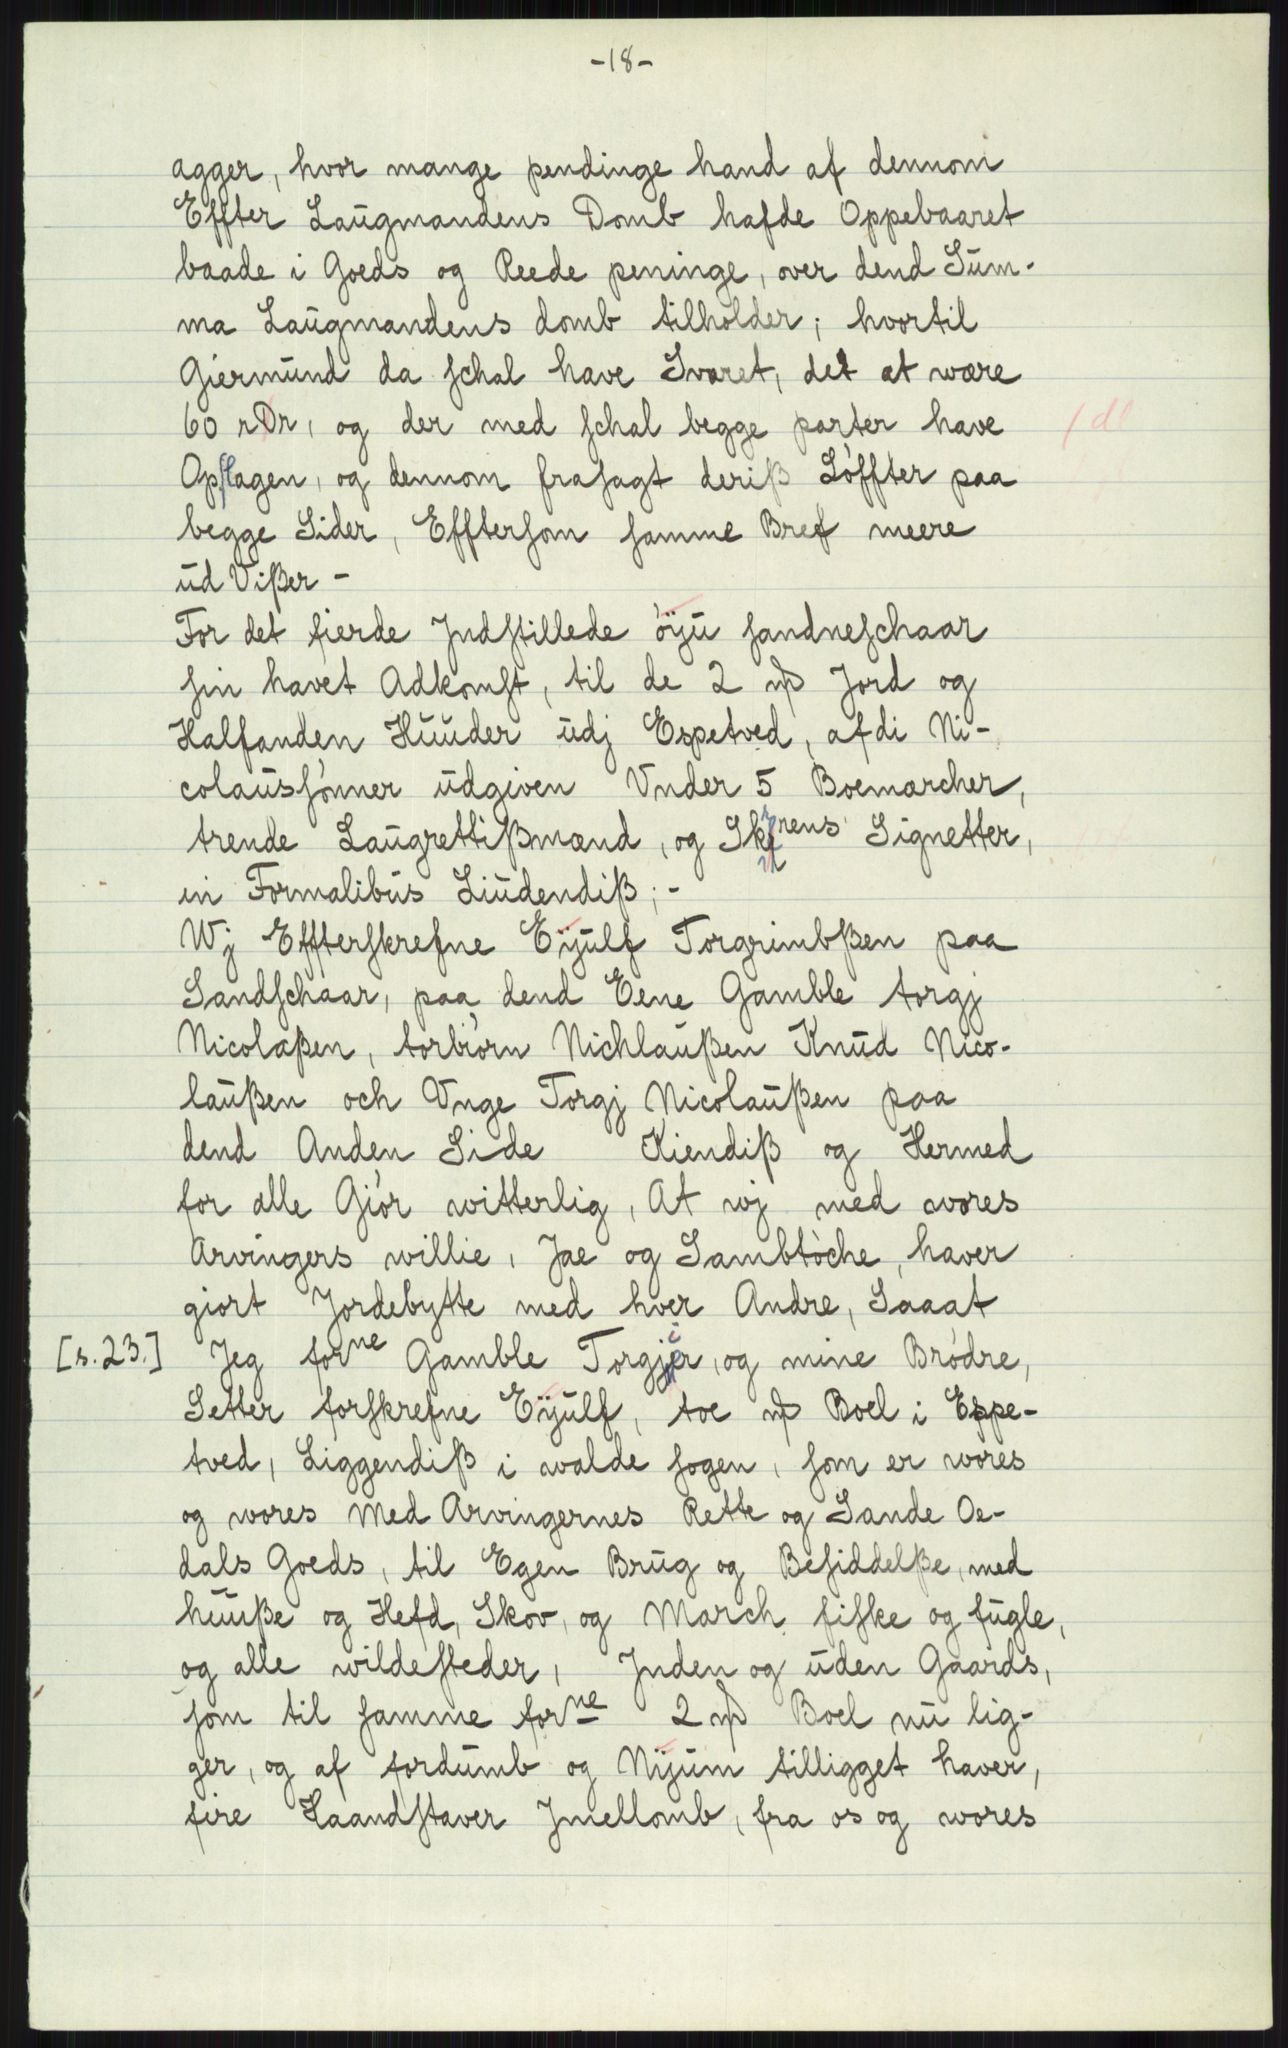 -18-
agger, hvor mange pendinge hand af dennom
Effter Laugmandens Domb hafde Oppebaaret
baade i Goeds og Reede peninge, over dend Sum-
ma Laugmandens domb tilholder; hvortil
Giermund da schal have Svaret, det at wære
60 rDr, og der med schal begge parter have
Opslagen, og dennom frasagt deriß Löffter paa
begge Sider, Efftersom samme Bref meere
ud Vißer -
For det fierde Jndstillede öÿu sandneschaar
sin havet Adkomst, til de 2 Jord og
Halfanden Huuder udj Espetved, afdi Ni-
colaussönner udgiven Vnder 5 Boemarcher,
trende Laugrettißmænd, og Signetter,
in Formalibus Liudendiß; -
Wj Effterskrefne Eÿulf Torgrimbßen paa
Sandschaar, paa dend Eene Gamble torgj
Nicolaßen, torbiörn Nichlaußen Knud Nico-
laußen och Vnge Torgj Nicolaußen paa
dend Anden Side Kiendiß og Hermed
for alle Giör witterlig, At wj med wores
Arvingers willie, Jae og Sambtöche, haver
giort Jordebytte med hver Andre, Saaat
[s.23.] Jeg forne Gamble og mine Brödre,
Setter forskrefne Eÿulf, toe Boel i Espe-
tved, Liggendiß i walde sogen, som er wores
og wores Med Arvingernes Rette og Sande Oe-
dals Goeds, til Egen Brug og Besiddelße, med
huuße og Hefd, Skov, og March, fiske og fugle,
og alle wildesteder, Jnden og uden Gaards,
som til samme forne 2 Boel nu lig-
ger, og af fordumb og Nÿum tilligget haver,
fire Laandstaver Jmellomb, fra os og wores